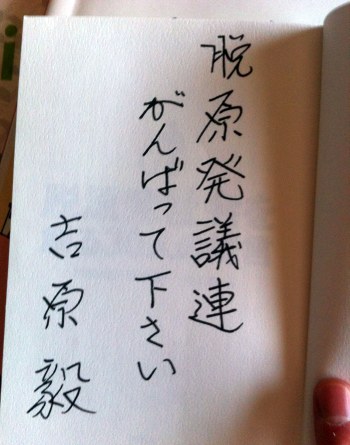 脱原発議連
がんばって下さい
吉原毅